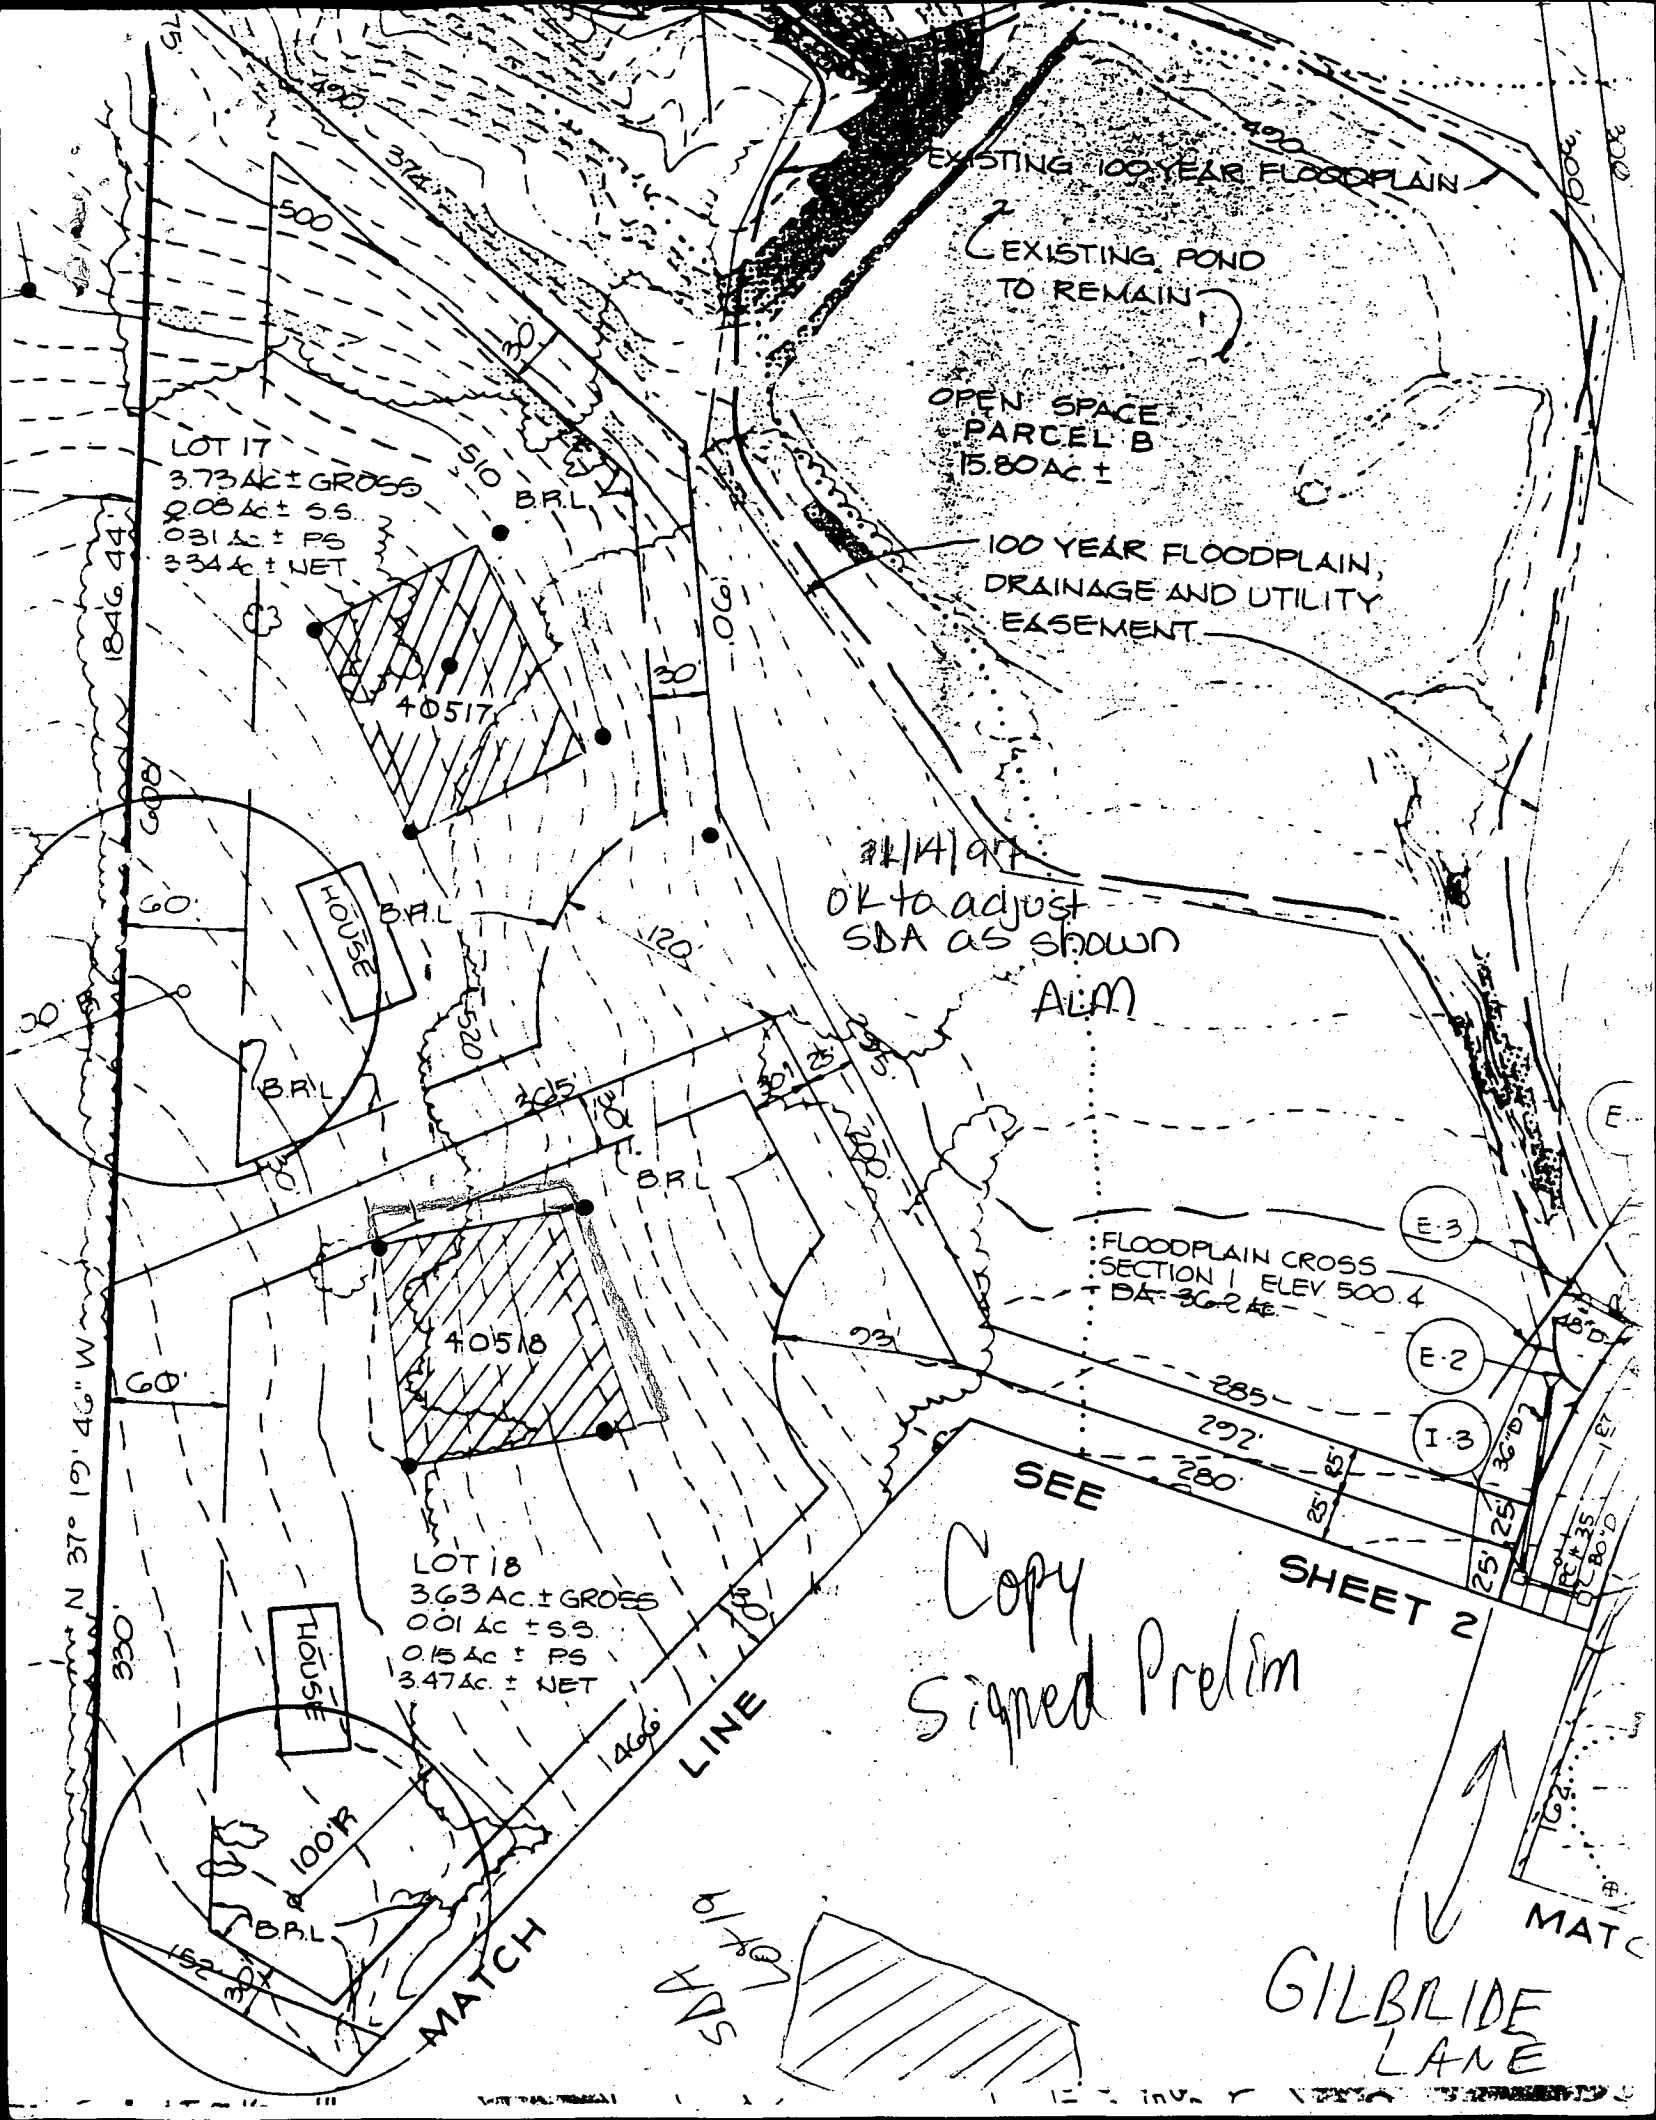 490
374'
500
EXISTING 100 YEAR FLOODPLAIN
490
300'
300
EXISTING POND
TO REMAIN
30'
OPEN SPACE
PARCEL B
15.80 AC. ±
LOT 17
3.73 AC ± GROSS
0.08 AC ± S.S.
0.31 AC. ± PS
3.34 AC ± NET
510
B.R.L.
100 YEAR FLOODPLAIN,
DRAINAGE AND UTILITY
EASEMENT
1846.44'
190'
30'
40517
608'
OK to adjust
SDA as shown
ALM
60'
HOUSE
B.R.L
120'
520
B.R.L.
365'
30'
30'
25'
95'
30'
200'
B.R.L
E-3
FLOODPLAIN CROSS
SECTION 1 ELEV 500.4
DA= 36.2 AC
48"D
40518
93'
E-2
60'
285'
292'
280'
I-3
36"D
25'
25'
25'
25'
N 37° 19' 46" W
330'
SEE
SHEET 2
LOT 18
3.63 AC. ± GROSS
0.01 AC ± S.S.
0.15 AC ± PS
3.47 AC. ± NET
30'
HOUSE
Copy
Signed Prelim
1466'
LINE
162'
100'R
B.R.L
152'
30'
MATCH
Lot 19
SDA
MATC
GILBRIDE
LANE